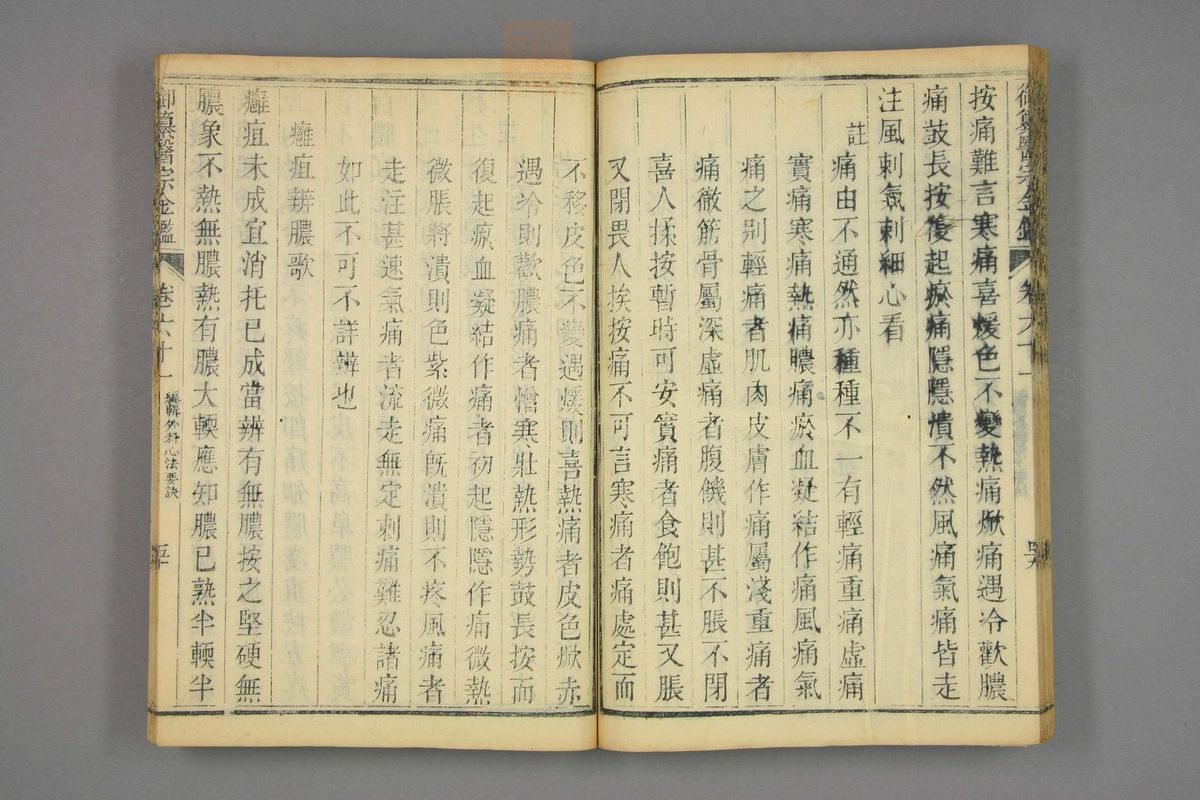 按痛難言寒痛喜煖色不變熱痛焮痛遇冷歡膿
痛鼓長按復起瘀痛隱隱潰不然風痛氣痛皆走
注風刺氣刺細心看
註
痛由不通然亦種種不一有輕痛重痛虛痛
實痛寒痛熱痛膿痛瘀血凝結作痛風痛氣
痛之別輕痛者肌肉皮膚作痛屬淺重痛者
痛徹筋骨屬深虛痛者腹饑則甚不脹不閉
喜人揉按暫時可安實痛者食飽則甚又脹
又閉畏人挨按痛不可言寒痛者痛處定而
御纂醫宗金鑑
卷六十一
不移皮色不變遇煖則喜熱痛者皮色焮赤
遇冷則歡膿痛者憎寒壯熱形勢鼓長按而
復起瘀血凝結作痛者初起隱隱作痛微熱
微脹將潰則色紫微痛旣潰則不疼風痛者
走注甚速氣痛者流走無定刺痛難忍諸痛
如此不可不詳辨也
癰疽辨膿歌
癰疽未成宜消托已成當辨有無膿按之堅硬無
膿象不熱無膿熱有膿大輭應知膿已熟半輭半
御纂醫宗金鑑
卷六十一
編輯外科心法要訣
五十